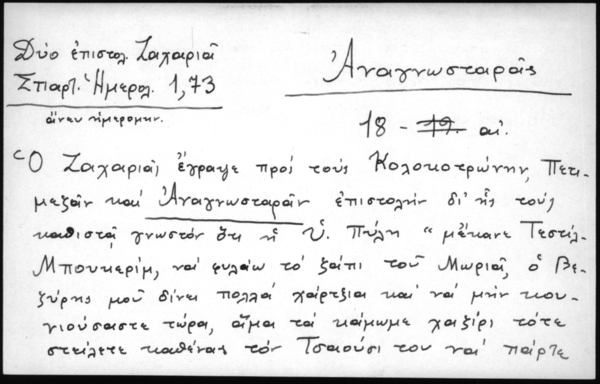 Δύο ἐπιστολ. Ζαχαριᾶ
Σπαρτ. Ἡμερολ. 1,73
ἄνευ ἡμερομην.
Ἀναγνωσταρᾶς
18 - 19. αἰ.
Ὁ Ζαχαριᾶς ἔγραψε πρός τούς Κολοκοτρώνην, Πετι-
μεζᾶν καί Ἀναγνωσταρᾶν ἐπιστολήν δι' ἧς τούς
καθιστᾷ γνωστόν ὅτι ἡ Ὑ. Πύλη " μἔκανε Τεστίλ-
Μπουκερίμ, νά φυλάω τό ζαίπι τοῦ Μωριᾶ, ὁ Βε-
ζύρης μοῦ δίνει πολλά χάρτζια καί νά μήν κου-
νιούσαστε τώρα, ἅμα τά κάμωμε χαζίρι τότε
στείλετε καθένας τόν Τσαούσι του νά πάρτε